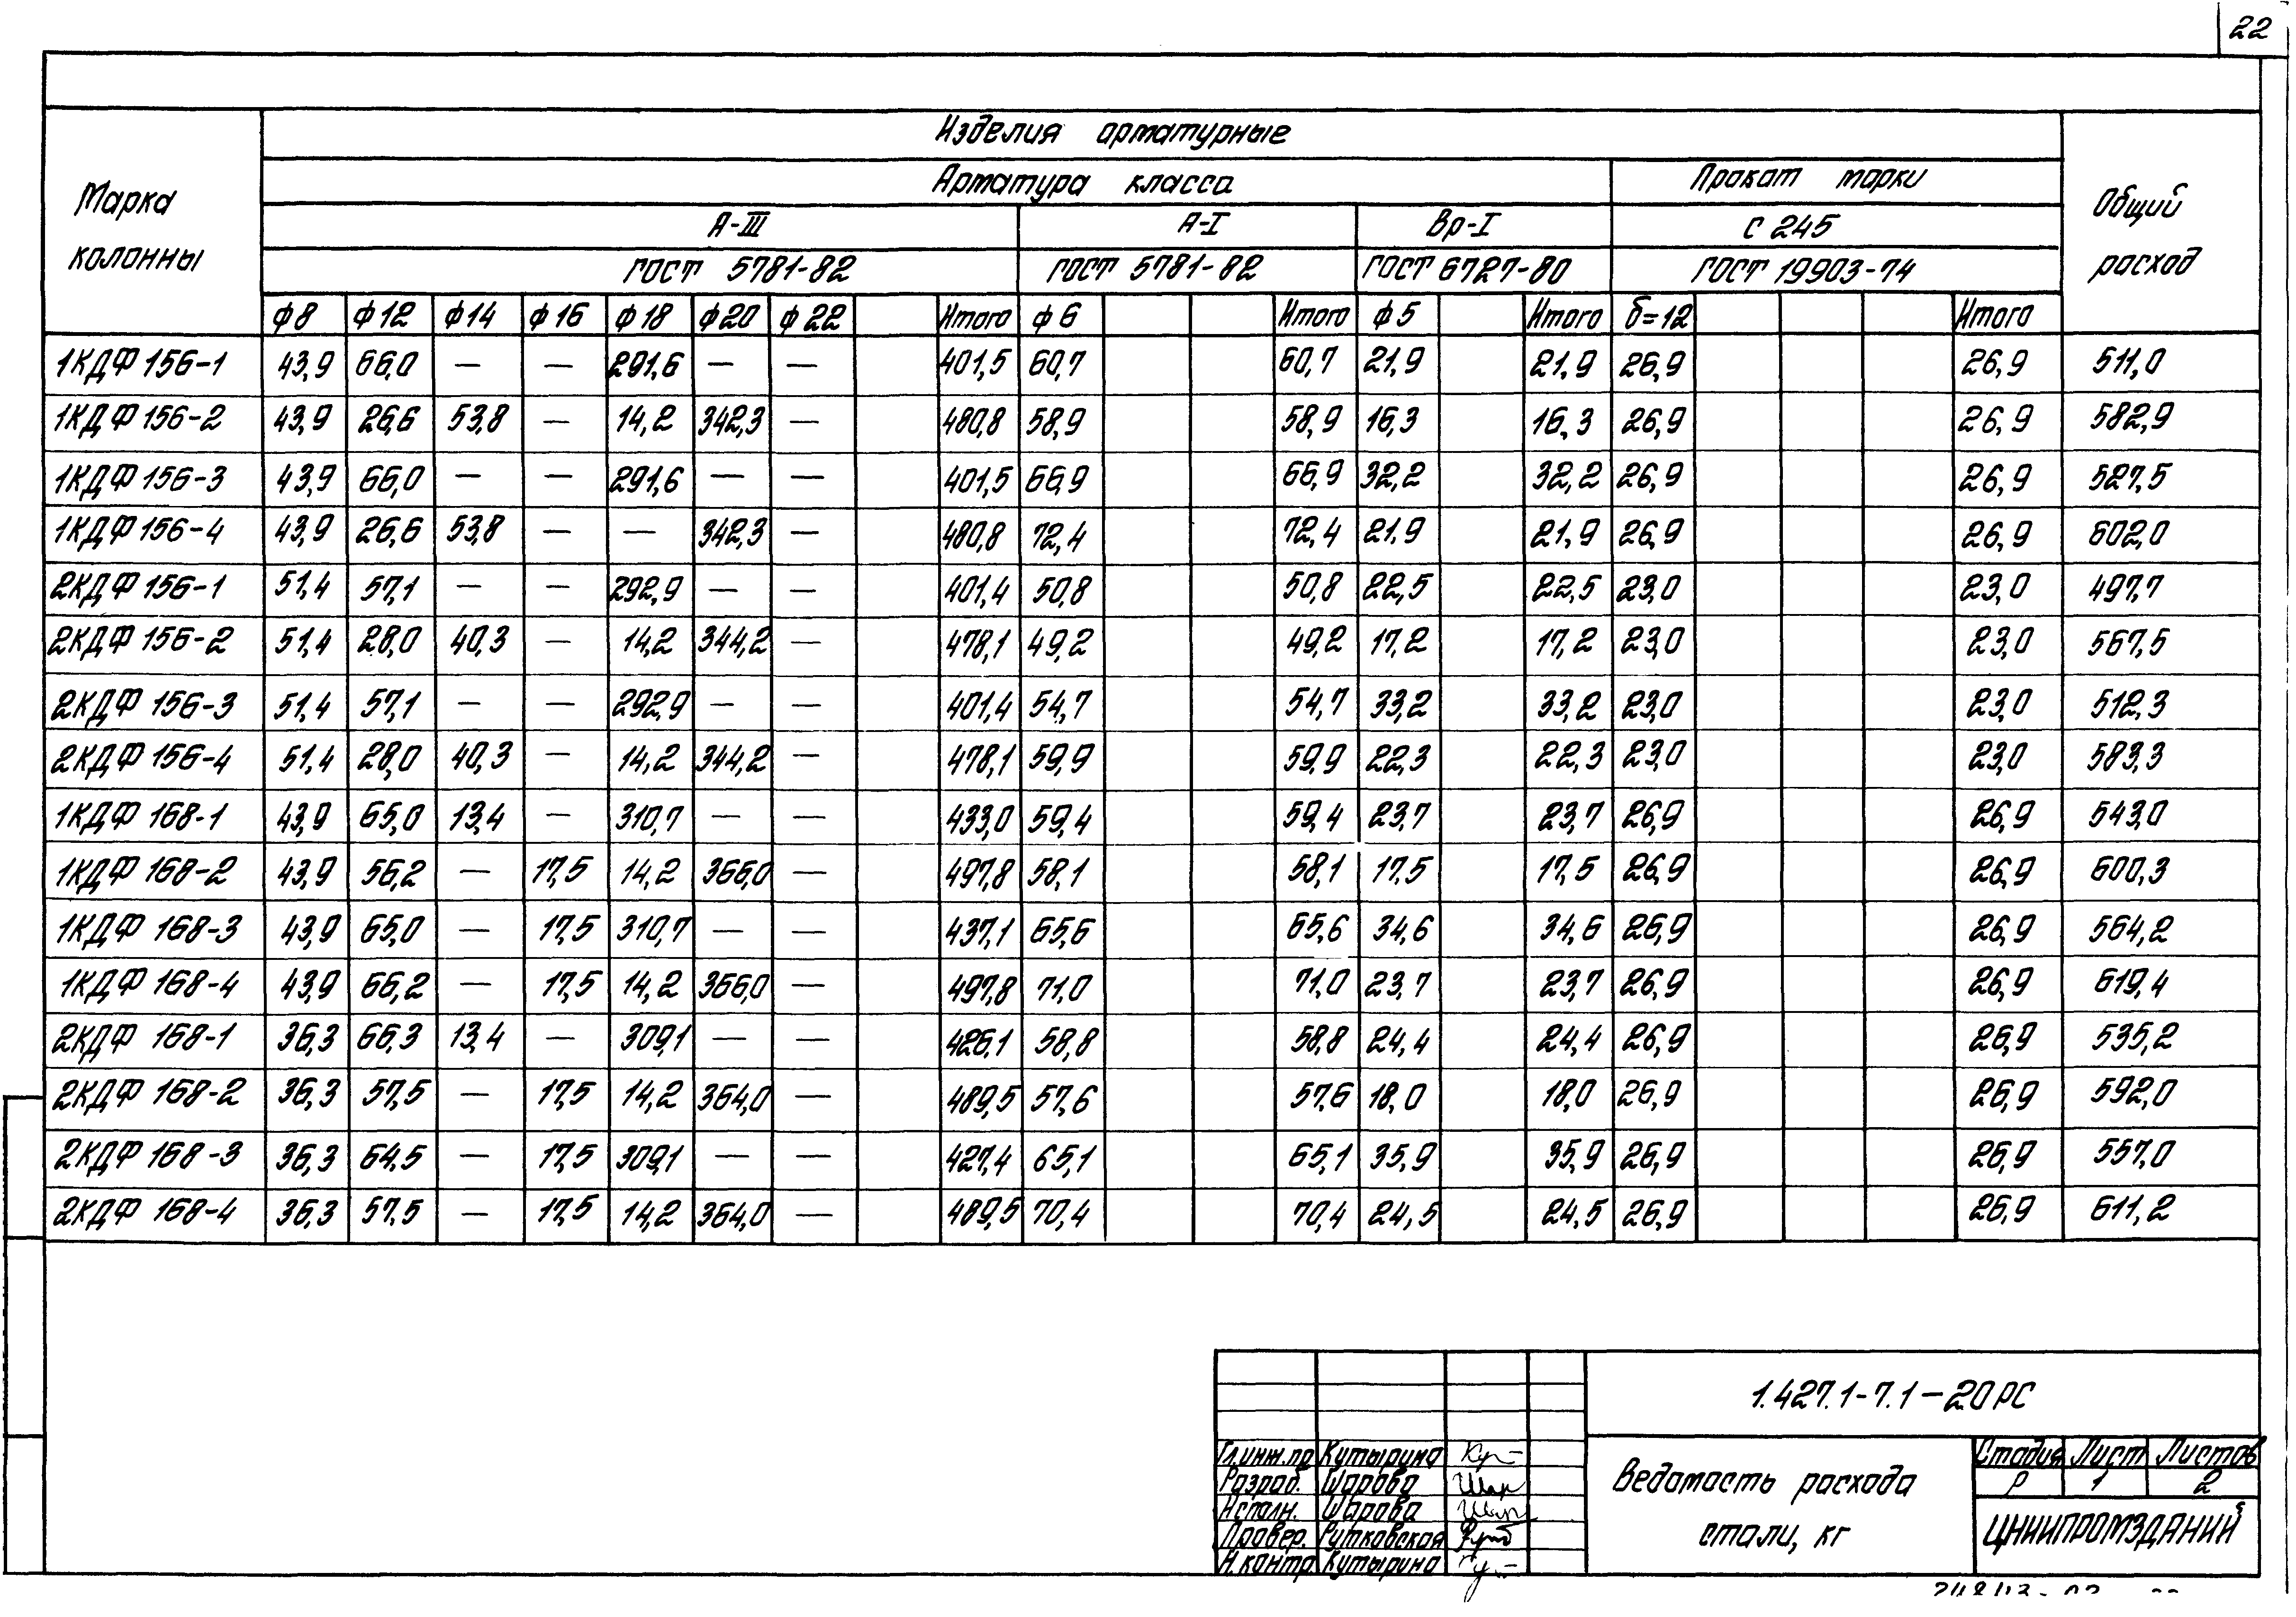 22
Изделия арматурные
Марка колонны
Арматура класса
Прокат марки
Общий расход
А-III
А-I
Вр-I
С 245
ГОСТ 5781-82
ГОСТ 5781-82
ГОСТ 6727-80
ГОСТ 19903-74
ф8 ф12 ф14 ф16 ф18 ф20 ф22 Итого ф6 Итого ф5 Итого б=12 Итого
1КДФ 156-1 43,9 66,0 — — 291,6 — — 401,5 60,7 60,7 21,9 21,9 26,9 26,9 511,0
1КДФ 156-2 43,9 26,6 53,8 — 14,2 342,3 — 480,8 58,9 58,9 16,3 16,3 26,9 26,9 582,9
1КДФ 156-3 43,9 66,0 — — 291,6 — — 401,5 66,9 66,9 32,2 32,2 26,9 26,9 527,5
1КДФ 156-4 43,9 26,6 53,8 — — 342,3 — 480,8 72,4 72,4 21,9 21,9 26,9 26,9 602,0
2КДФ 156-1 51,4 57,1 — — 292,9 — — 401,4 50,8 50,8 22,5 22,5 23,0 23,0 497,7
2КДФ 156-2 51,4 28,0 40,3 — 14,2 344,2 — 478,1 49,2 49,2 17,2 17,2 23,0 23,0 567,5
2КДФ 156-3 51,4 57,1 — — 292,9 — — 401,4 54,7 54,7 33,2 33,2 23,0 23,0 512,3
2КДФ 156-4 51,4 28,0 40,3 — 14,2 344,2 — 478,1 59,9 59,9 22,3 22,3 23,0 23,0 583,3
1КДФ 168-1 43,9 65,0 13,4 — 310,7 — — 433,0 59,4 59,4 23,7 23,7 26,9 26,9 543,0
1КДФ 168-2 43,9 56,2 — 17,5 14,2 366,0 — 497,8 58,1 58,1 17,5 17,5 26,9 26,9 600,3
1КДФ 168-3 43,9 65,0 — 17,5 310,7 — — 437,1 65,6 65,6 34,6 34,6 26,9 26,9 564,2
1КДФ 168-4 43,9 66,2 — 17,5 14,2 366,0 — 497,8 71,0 71,0 23,7 23,7 26,9 26,9 619,4
2КДФ 168-1 36,3 66,3 13,4 — 309,1 — — 426,1 58,8 58,8 24,4 24,4 26,9 26,9 535,2
2КДФ 168-2 36,3 57,5 — 17,5 14,2 364,0 — 489,5 57,6 57,6 18,0 18,0 26,9 26,9 592,0
2КДФ 168-3 36,3 64,5 — 17,5 309,1 — — 427,4 65,1 65,1 35,9 35,9 26,9 26,9 557,0
2КДФ 168-4 36,3 57,5 — 17,5 14,2 364,0 — 489,5 70,4 70,4 24,5 24,5 26,9 26,9 611,2
1.427.1-7.1-20РС
Гл.инж.пр Кутырина
Разраб. Шарова Шар
Исполн. Шарова Шар
Провер. Рутковская
Н.контр. Кутырина
Ведомость расхода
стали, кг
Стадия Лист Листов
Р 1 2
ЦНИИПРОМЗДАНИЙ